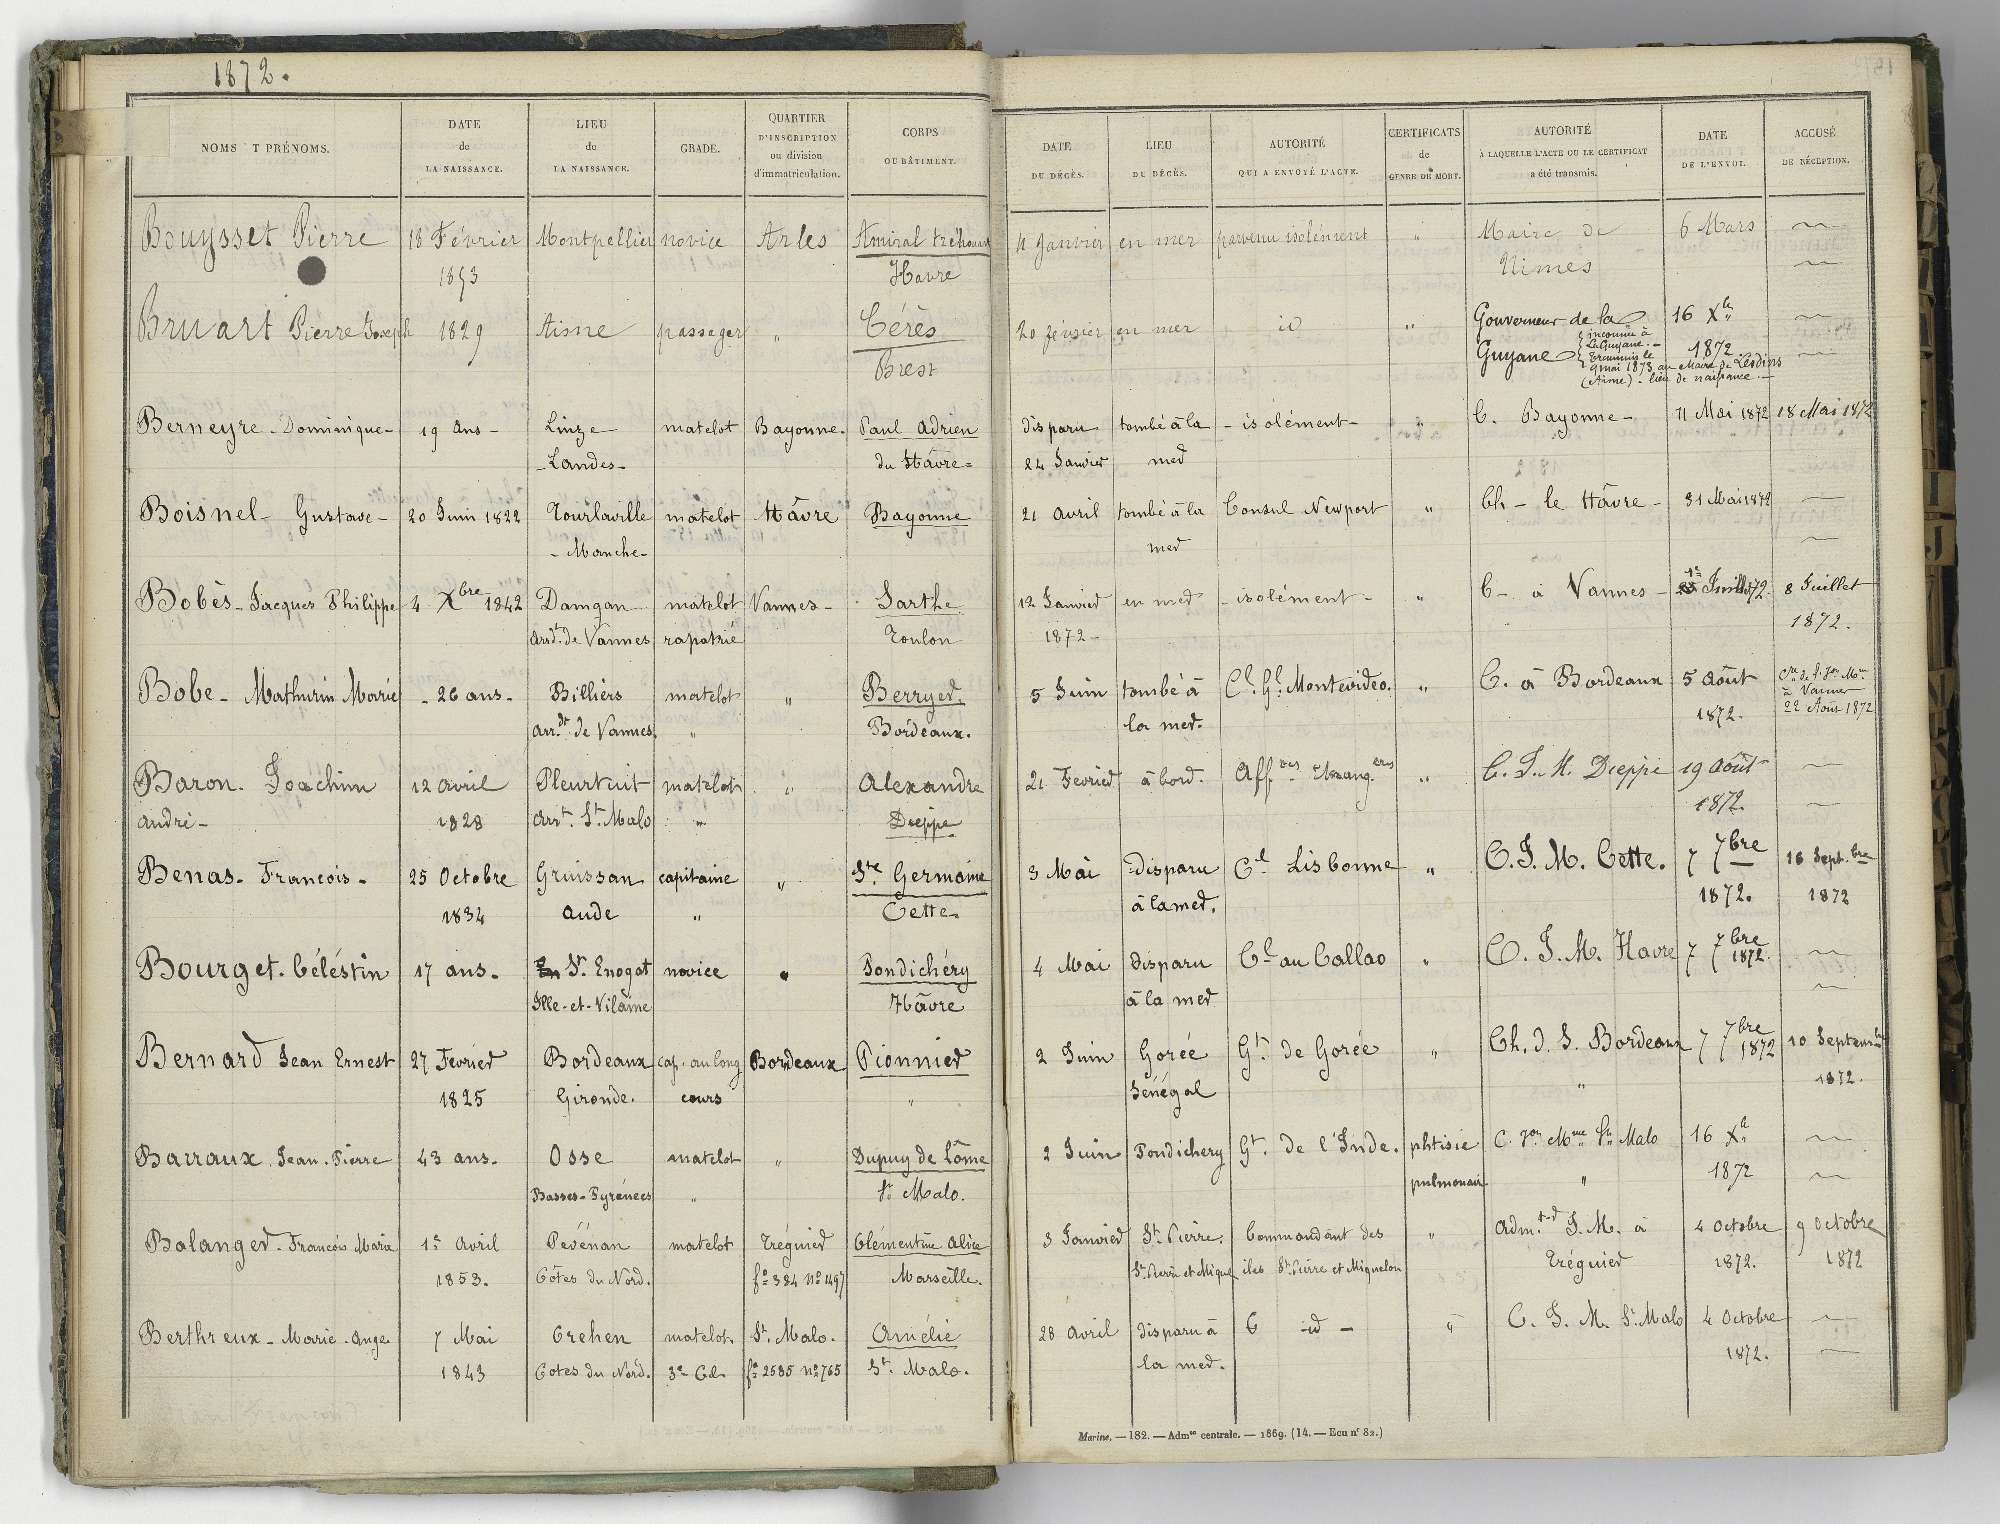 1872.
NOMS T PRÉNOMS.
DATE
de
LA NAISSANCE.
LIEU
de
LA NAISSANCE.
GRADE.
QUARTIER
D'INSCRIPTION
ou division
d'immatriculation.
CORPS
OU BÂTIMENT.
DATE
DU DÉCÈS.
LIEU
DU DÉCÈS.
AUTORITÉ
QUI A ENVOYÉ L'ACTE.
CERTIFICATS
de
GENRE DE MORT.
AUTORITÉ
À LAQUELLE L'ACTE OU LE CERTIFICAT
a été transmis.
DATE
DE L'ENVOI.
ACCUSÉ
DE RÉCEPTION.
Bouysset Pierre 18 Février Montpellier novice Arles Amiral tréhouart 11 Janvier en mer parvenu isolément " Maire de 6 Mars
1853 Havre Nimes
Bruart Pierre Joseph 1829 Aisne passager " Cérès 20 février en mer id " Gouverneur de la 16 Xbre
Brest Guyane 1872.
inconnu à
La Guyane. -
transmis le
9 mai 1873 au Maire de Lesdins
(Aisne) - lieu de naissance. -
Berneyre - Dominique - 19 ans - Linxe matelot Bayonne. Paul Adrien disparu tombé à la - isolément - " C. Bayonne - 11 Mai 1872 18 Mai 1872
- Landes - du Hâvre = 24 Janvier mer
Boisnel - Gustave - 20 Juin 1822 Tourlaville matelot Hâvre Bayonne 21 avril tombé à la Consul Newport " Ch - le Hâvre - 31 Mai 1872
- Manche - mer
Bobès - Jacques Philippe 4 Xbre 1842 Damgan matelot Vannes - Sarthe 12 Janvier en mer - isolément - " C - à Vannes - 1er Juillet 1872. 8 Juillet
arrdt. de Vannes rapatrié Toulon 1872 - 1872.
Bobe - Mathurin Marie - 26 ans - Billiers matelot " Berryer 5 Juin tombé à Cl. Gl. Montevideo. " C. à Bordeaux 5 août
arr.dt de Vannes. " Bordeaux. la mer. 1872. à Vannes
22 Août 1872
Baron. Joachim 12 avril Pleurtuit matelot " Alexandre 21 Fevrier à bord. Aff.res Etrang.ères " C. I. M. Dieppe 19 août
André - 1828 arrt. St. Malo " Dieppe 1872.
Benas - François - 25 Octobre Gruissan capitaine " Ste. Germaine 3 Mai disparu Cl Lisbonne " C. I. M. Cette. 7 7bre 16 Sept.bre
1834 Aude " Cette. à la mer. 1872. 1872
Bourget. Céléstin 17 ans. St. Enogat novice " Pondichéry 4 Mai disparu Cl au Callao " C. I. M. Havre 7 7bre 1872.
Ille-et-Vilaine Hâvre à la mer
Bernard Jean Ernest 27 Fevrier Bordeaux cap. au long Bordeaux Pionnier 2 Juin Gorée Gt. de Gorée " Ch. d. S. Bordeaux 7 7bre 1872 10 Septembre
1825 Gironde. cours " Sénégal " 1872.
Barraux. Jean-Pierre 43 ans. Osse matelot " Dupuy de Lôme 2 Juin Pondichery Gt. de l'Inde. phtisie St. Malo 16 Xbre
Basses-Pyrénées " St. Malo. pulmonair " 1872
Balanger. François Marie 1er avril Pévénan matelot Tréguier Clémentine Alice 3 Janvier St. Pierre. Commandant des " adm.teur I. M. à 4 Octobre 9 Octobre
1853. Côtes du Nord. fo 384 no 1497 Marseille. St. Pierre et Miquel iles St. Pierre et Miquelon Tréguier 1872. 1872
Berthreux - Marie-Ange 7 Mai Crehen matelot. St. Malo. Amélie 28 avril disparu à C - id - " C. I. M. St. Malo 4 Octobre
1843 Cotes du Nord. 3e Cl. fo 2585 no 765 St. Malo. la mer. 1872.
Marine. — 182. — Admon centrale. — 1869. (14. — Ecu n° 82.)